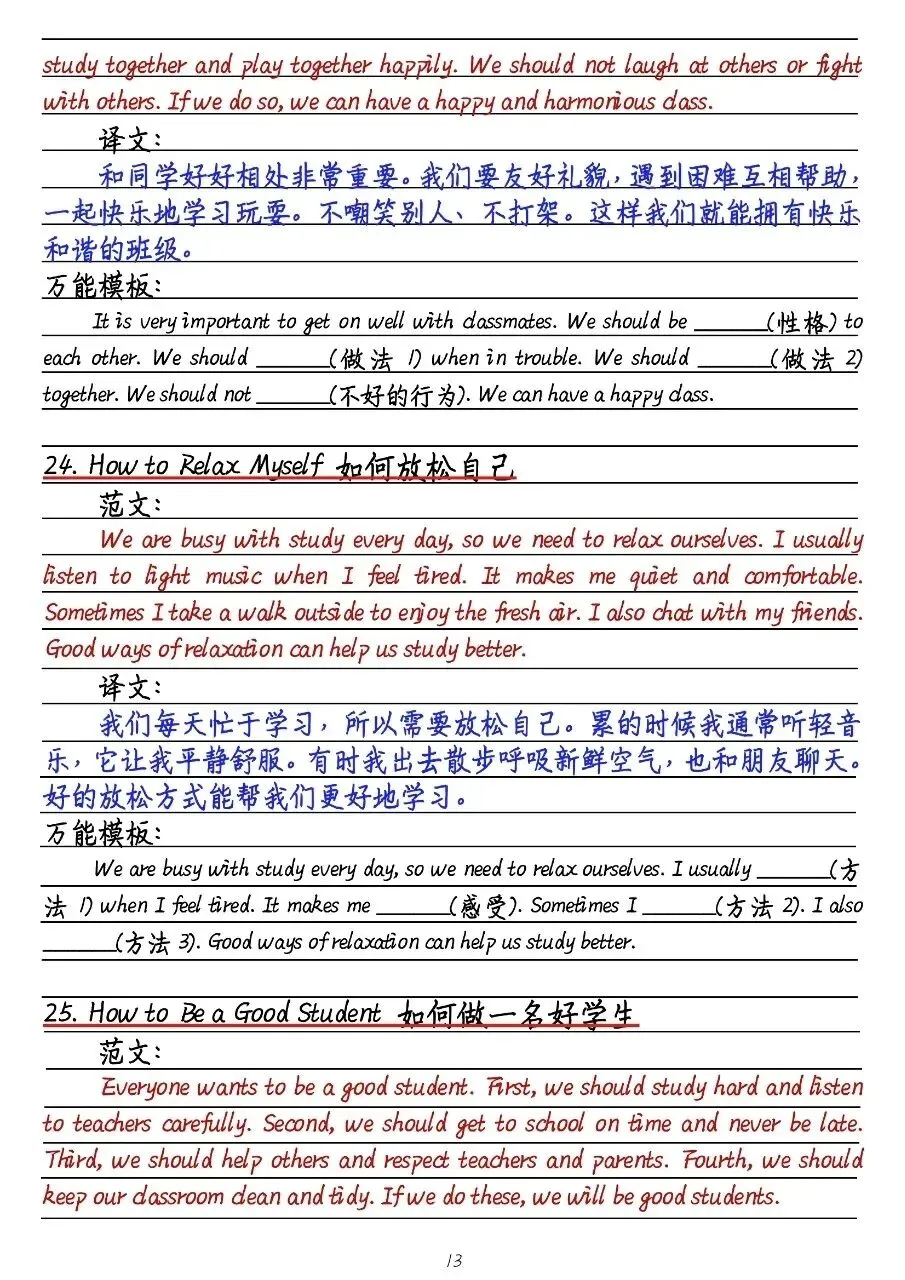 study together and play together happily. We should not laugh at others or fight
with others. If we do so, we can have a happy and harmonious class.
译文：
和同学好好相处非常重要。我们要友好礼貌，遇到困难互相帮助，
一起快乐地学习玩耍。不嘲笑别人、不打架。这样我们就能拥有快乐
和谐的班级。
万能模板：
It is very important to get on well with classmates. We should be ______(性格) to
each other. We should ______(做法 1) when in trouble. We should ______(做法 2)
together. We should not ______(不好的行为). We can have a happy class.
24. How to Relax Myself 如何放松自己
范文：
We are busy with study every day, so we need to relax ourselves. I usually
listen to light music when I feel tired. It makes me quiet and comfortable.
Sometimes I take a walk outside to enjoy the fresh air. I also chat with my friends.
Good ways of relaxation can help us study better.
译文：
我们每天忙于学习，所以需要放松自己。累的时候我通常听轻音
乐，它让我平静舒服。有时我出去散步呼吸新鲜空气，也和朋友聊天。
好的放松方式能帮我们更好地学习。
万能模板：
We are busy with study every day, so we need to relax ourselves. I usually ______(方
法 1) when I feel tired. It makes me ______(感受). Sometimes I ______(方法 2). I also
______(方法 3). Good ways of relaxation can help us study better.
25. How to Be a Good Student 如何做一名好学生
范文：
Everyone wants to be a good student. First, we should study hard and listen
to teachers carefully. Second, we should get to school on time and never be late.
Third, we should help others and respect teachers and parents. Fourth, we should
keep our classroom clean and tidy. If we do these, we will be good students.
13